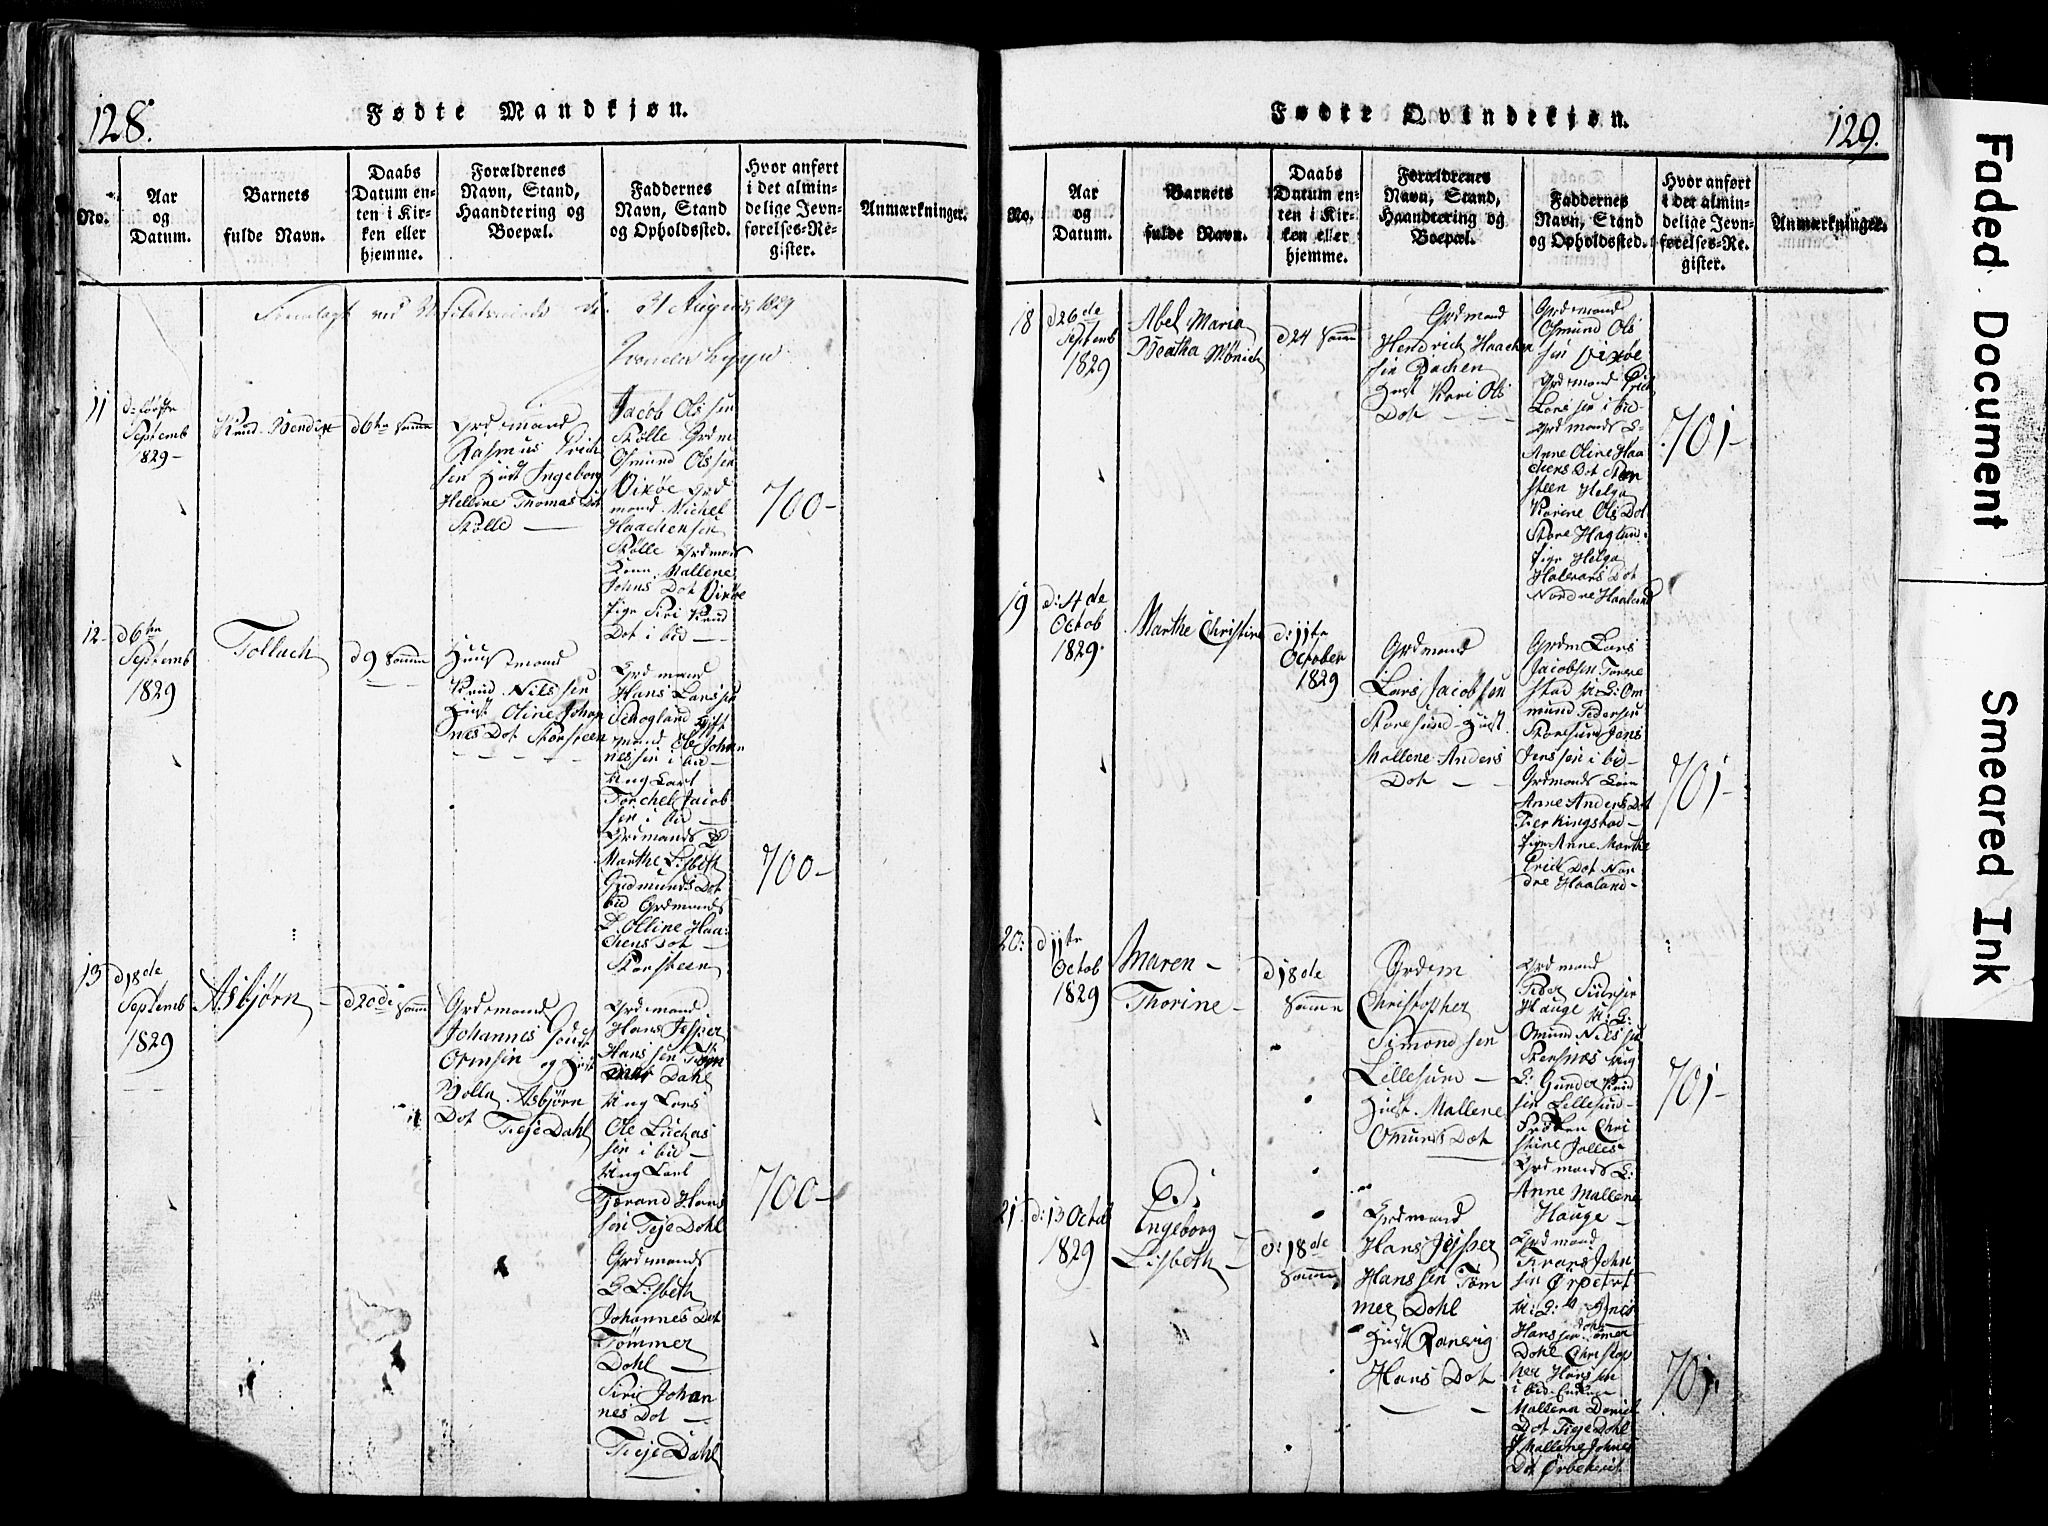 128.
Fødte Mandkjøn.
No.
Aar
og
Datum.
Barnets
fulde Navn.
Daabs
Datum en-
ten i Kir-
ken eller
hjemme.
Forældrenes
Navn, Stand,
Haandtering og
Boepæl.
Faddernes
Navn, Stand
og Opholdssted.
Hvor anført
i det almin-
delige Jevn-
førelses-Re-
gister.
Anmærkninger.
11
Septemb
1829-
d 6te Samme
Grdmand
Rasmus Erich
sen Hust Ingeborg
Helline Thomas Dot
Stølle
Jacob Olssen
Stølle Grdm
Osmund Olssen
Vixøe Grd
mand Michel
Haachensen
Stølle Grdmans
Kone Mallene
Johns Dot Vixøe
Pige Siri Knud
Dot i bid
700-
12-
d 6te
Septemb
1829
Tollach
d 9 Samme
Huusmand
Knud Nilssen
Hust Oline Johan
nes Dot Storsteen
Grdmand
Hans Larssen
Schogland Gift
mand Ole Johan
nessen i bid
Ung Karl
Torchel Jacob
sen i bid
Grdmands
Marthe Lisbeth
Gudmunds Dot
bid Grdmands
K. Olline Haa-
chens Dot
Storsteen
700-
13
d 18de
Septemb
1829
Asbjørn
d 20de Samme
Grdmand
Johannes
Ormsen og Hust
Bolla Asbjørn
Dot Tieje Dahl
Grdmand
Hans Jesper
Hanssen Tøm
mer Dahl
Ung Karl
Ole Luchas
sen i bid
Ung Karl
Tærand Hans
sen Teje Dahl
Grdmands
K Lisbeth
Johannes Dot
Tømmer
Dahl
Siri Johan
nes Dot
Tieje Dahl
700-
129.
Fødte Qvindekjøn.
No.
Aar
og
Datum.
Barnets
fulde Navn.
Daabs
Datum en-
ten i Kir-
ken eller
hjemme.
Forældrenes
Navn, Stand,
Haandtering og
Boepæl.
Faddernes
Navn, Stand
og Opholdssted.
Hvor anført
i det almin-
delige Jevn-
førelses-Re-
gister.
Anmærkninger.
18
d 26de
Septemb
1829
Abel Maria
Beatha Mønich
d 24 Samme
Grdmand
Hendrich Haachen
sen Bachen
Hust Kari Ols
Dot
Grdmand
Osmund Ols
sen Vixøe
Grdmand Erich
Larssen i bid-
Grdmands K:
Anne Oline Haa
chens Dot Stor
steen Helga
Karine Ols Dot
Store Hagland
Pige Helga
Halvars Dot
Nordre Haaland
701-
19
d: 4de
Octob
1829
Marthe Christine
d: 11te
October
1829
Grdmand
Lars Jacobsen
Storesund Hust
Mallene Anders
Dot
Grdm Lars
Jacobsen Tonne
stad U: K: Om
mund Pedersen
Storesund Jens
Jenssen i bid-
Grdmands Kone
Anne Anders Dot
Ferkingstad
Pige Anne Marthe
Erick Dot Nor
dre Haaland-
701-
20:
d 11te
Octob
1829
Maren
Thorine
d 18de
Samme
Grdm
Christopher
Simondsen
Lillesund
Hust Mallene
Omunds Dot
Grdmand
Hauge U: K:
Omund Nilssen
Stensnæs Ung
K: Gunder Knud
sen Lillesund
Frøken Chri
stine Jalles
Grdmands K:
Anne Mallene
Hauge
701-
21.
d: 13 Octob
1829
Ingeborg
Lisbeth
d: 18de
Samme
Grdmand
Hans Jesper
Hanssen Tøm
mer Dahl
Hust Ranvig
Hans Dot
Grdmand
John
sen Ørpetvet
Hanssen Tømer
Dahl
Dahl Christop
her Hanssen
i bid
Mallena Daniel
Dot Tieje Dahl
P Mallene Johnes
Dot Ørbekvet
701.
Faded Document
Smeared Ink